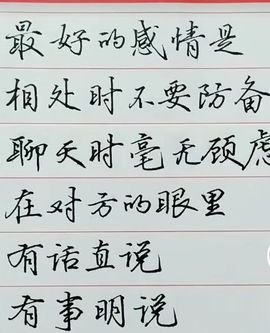 最好的感情是
相处时不要防备
聊天时毫无顾虑
在对方的眼里
有话直说
有事明说